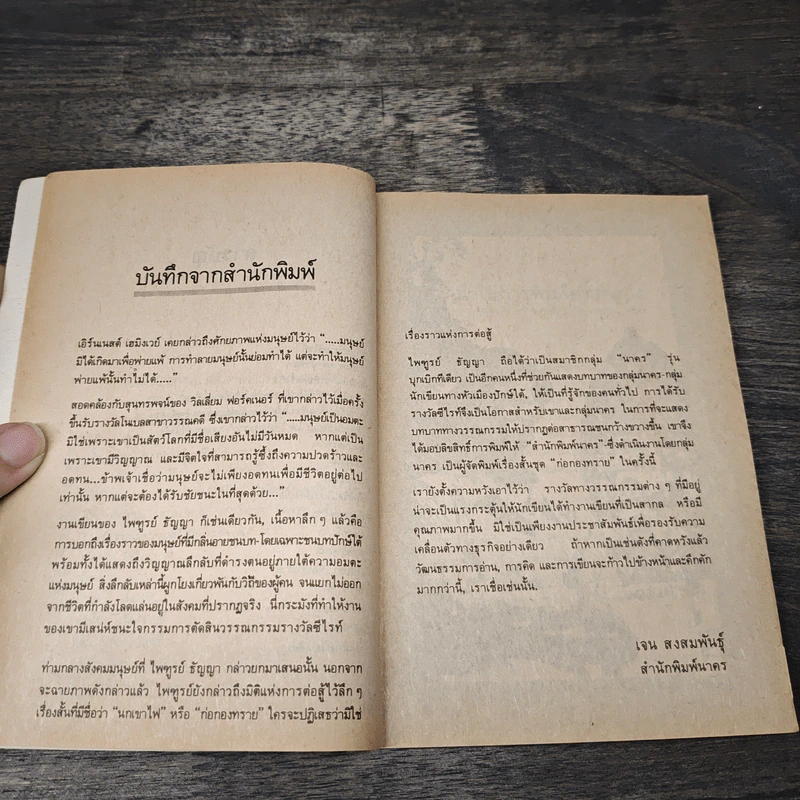 บันทึกจากสำนักพิมพ์
เออร์เนสต์ เฮมิงเวย์ เคยกล่าวถึงศักยภาพแห่งมนุษย์ไว้ว่า “.....มนุษย์
มิได้เกิดมาเพื่อพ่ายแพ้ การทำลายมนุษย์นั้นย่อมทำได้ แต่จะทำให้มนุษย์
พ่ายแพ้นั้นทำไม่ได้.....”
สอดคล้องกับสุนทรพจน์ของ วิลเลี่ยม ฟอร์คเนอร์ ที่เขากล่าวไว้เมื่อครั้ง
ขึ้นรับรางวัลโนเบลสาขาวรรณคดี ซึ่งเขากล่าวไว้ว่า “.....มนุษย์เป็นอมตะ
มิใช่เพราะเขาเป็นสัตว์โลกที่มีชื่อเสียงอันไม่มีวันหมด หากแต่เป็น
เพราะเขามีวิญญาณ และมีจิตใจที่สามารถรู้ซึ้งถึงความปวดร้าวและ
อดทน...ข้าพเจ้าเชื่อว่ามนุษย์จะไม่เพียงอดทนเพื่อมีชีวิตอยู่ต่อไป
เท่านั้น หากแต่จะต้องได้รับชัยชนะในที่สุดด้วย...”
งานเขียนของ ไพฑูรย์ ธัญญา ก็เช่นเดียวกัน, เนื้อหาลึก ๆ แล้วคือ
การบอกถึงเรื่องราวของมนุษย์ที่มีกลิ่นอายชนบท-โดยเฉพาะชนบทปักษ์ใต้
พร้อมทั้งได้แสดงถึงวิญญาณลึกลับที่ดำรงตนอยู่ภายใต้ความอมตะ
แห่งมนุษย์ สิ่งลึกลับเหล่านี้ผูกโยงเกี่ยวพันกับวิถีของผู้คน จนแยกไม่ออก
จากชีวิตที่กำลังโลดแล่นอยู่ในสังคมที่ปรากฏจริง นี่กระมังที่ทำให้งาน
ของเขามีเสน่ห์ชนะใจกรรมการตัดสินวรรณกรรมรางวัลซีไรท์
ท่ามกลางสังคมมนุษย์ที่ ไพฑูรย์ ธัญญา กล่าวยกมาเสนอนั้น นอกจาก
จะฉายภาพดังกล่าวแล้ว ไพฑูรย์ยังกล่าวถึงมิติแห่งการต่อสู้ไว้ลึก ๆ
เรื่องสั้นที่มีชื่อว่า “นกเขาไฟ” หรือ “ก่อกองทราย” ใครจะปฏิเสธว่ามิใช่
เรื่องราวแห่งการต่อสู้
ไพฑูรย์ ธัญญา ถือได้ว่าเป็นสมาชิกกลุ่ม “นาคร” รุ่น
บุกเบิกทีเดียว เป็นอีกคนหนึ่งที่ช่วยกันแสดงบทบาทของกลุ่มนาคร-กลุ่ม
นักเขียนทางหัวเมืองปักษ์ใต้, ให้เป็นที่รู้จักของคนทั่วไป การได้รับ
รางวัลซีไรท์จึงเป็นโอกาสสำหรับเขาและกลุ่มนาคร ในการที่จะแสดง
บทบาททางวรรณกรรมให้ปรากฏต่อสาธารณชนกว้างขวางขึ้น เขาจึง
ได้มอบลิขสิทธิ์การพิมพ์ให้ “สำนักพิมพ์นาคร”-ซึ่งดำเนินงานโดยกลุ่ม
นาคร เป็นผู้จัดพิมพ์เรื่องสั้นชุด “ก่อกองทราย” ในครั้งนี้
เรายังตั้งความหวังเอาไว้ว่า รางวัลทางวรรณกรรมต่าง ๆ ที่มีอยู่
น่าจะเป็นแรงกระตุ้นให้นักเขียนได้ทำงานเขียนที่เป็นสากล หรือมี
คุณภาพมากขึ้น มิใช่เป็นเพียงงานประชาสัมพันธ์เพื่อรองรับความ
เคลื่อนตัวทางธุรกิจอย่างเดียว ถ้าหากเป็นเช่นดังที่คาดหวังแล้ว
วัฒนธรรมการอ่าน, การคิด และการเขียนจะก้าวไปข้างหน้าและคึกคัก
มากกว่านี้, เราเชื่อเช่นนั้น.
เจน สงสมพันธุ์
สำนักพิมพ์นาคร